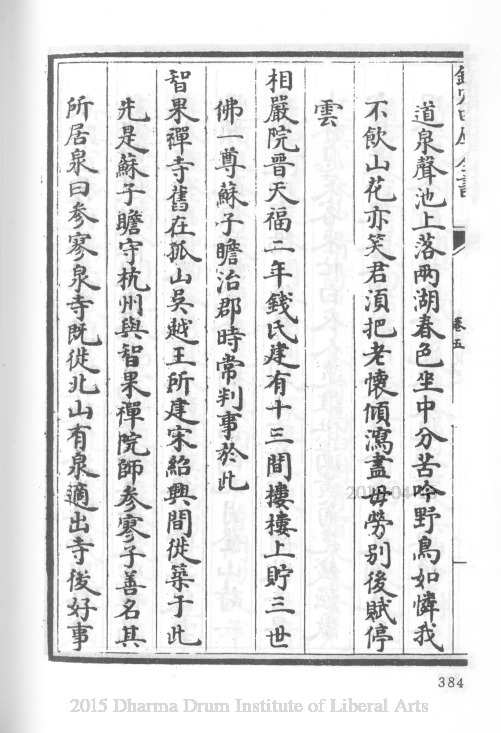 欽定四庫全書
卷五
道泉聲池上落兩湖春色坐中分苦吟野鳥如憐我
不飲山花亦笑君須把老懷傾瀉盡毋勞別後賦停
雲
相嚴院晉天福二年錢氏建有十三間樓樓上貯三世
佛一尊蘇子瞻治郡時常判事於此
智果禪寺舊在孤山吳越王所建宋紹興間徙築于此
先是蘇子瞻守杭州與智果禪院師參寥子善名其
所居泉曰參寥泉寺既徙北山有泉適出寺後好事
384
2015 Dharma Drum Institute of Liberal Arts